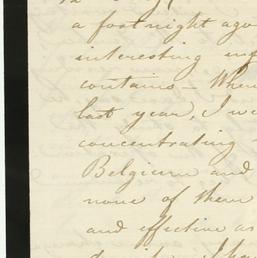 a fortnight ago
interesting inf
contains – Whe
last year, I w
concentrating
Belgium and
none of them
and effective as